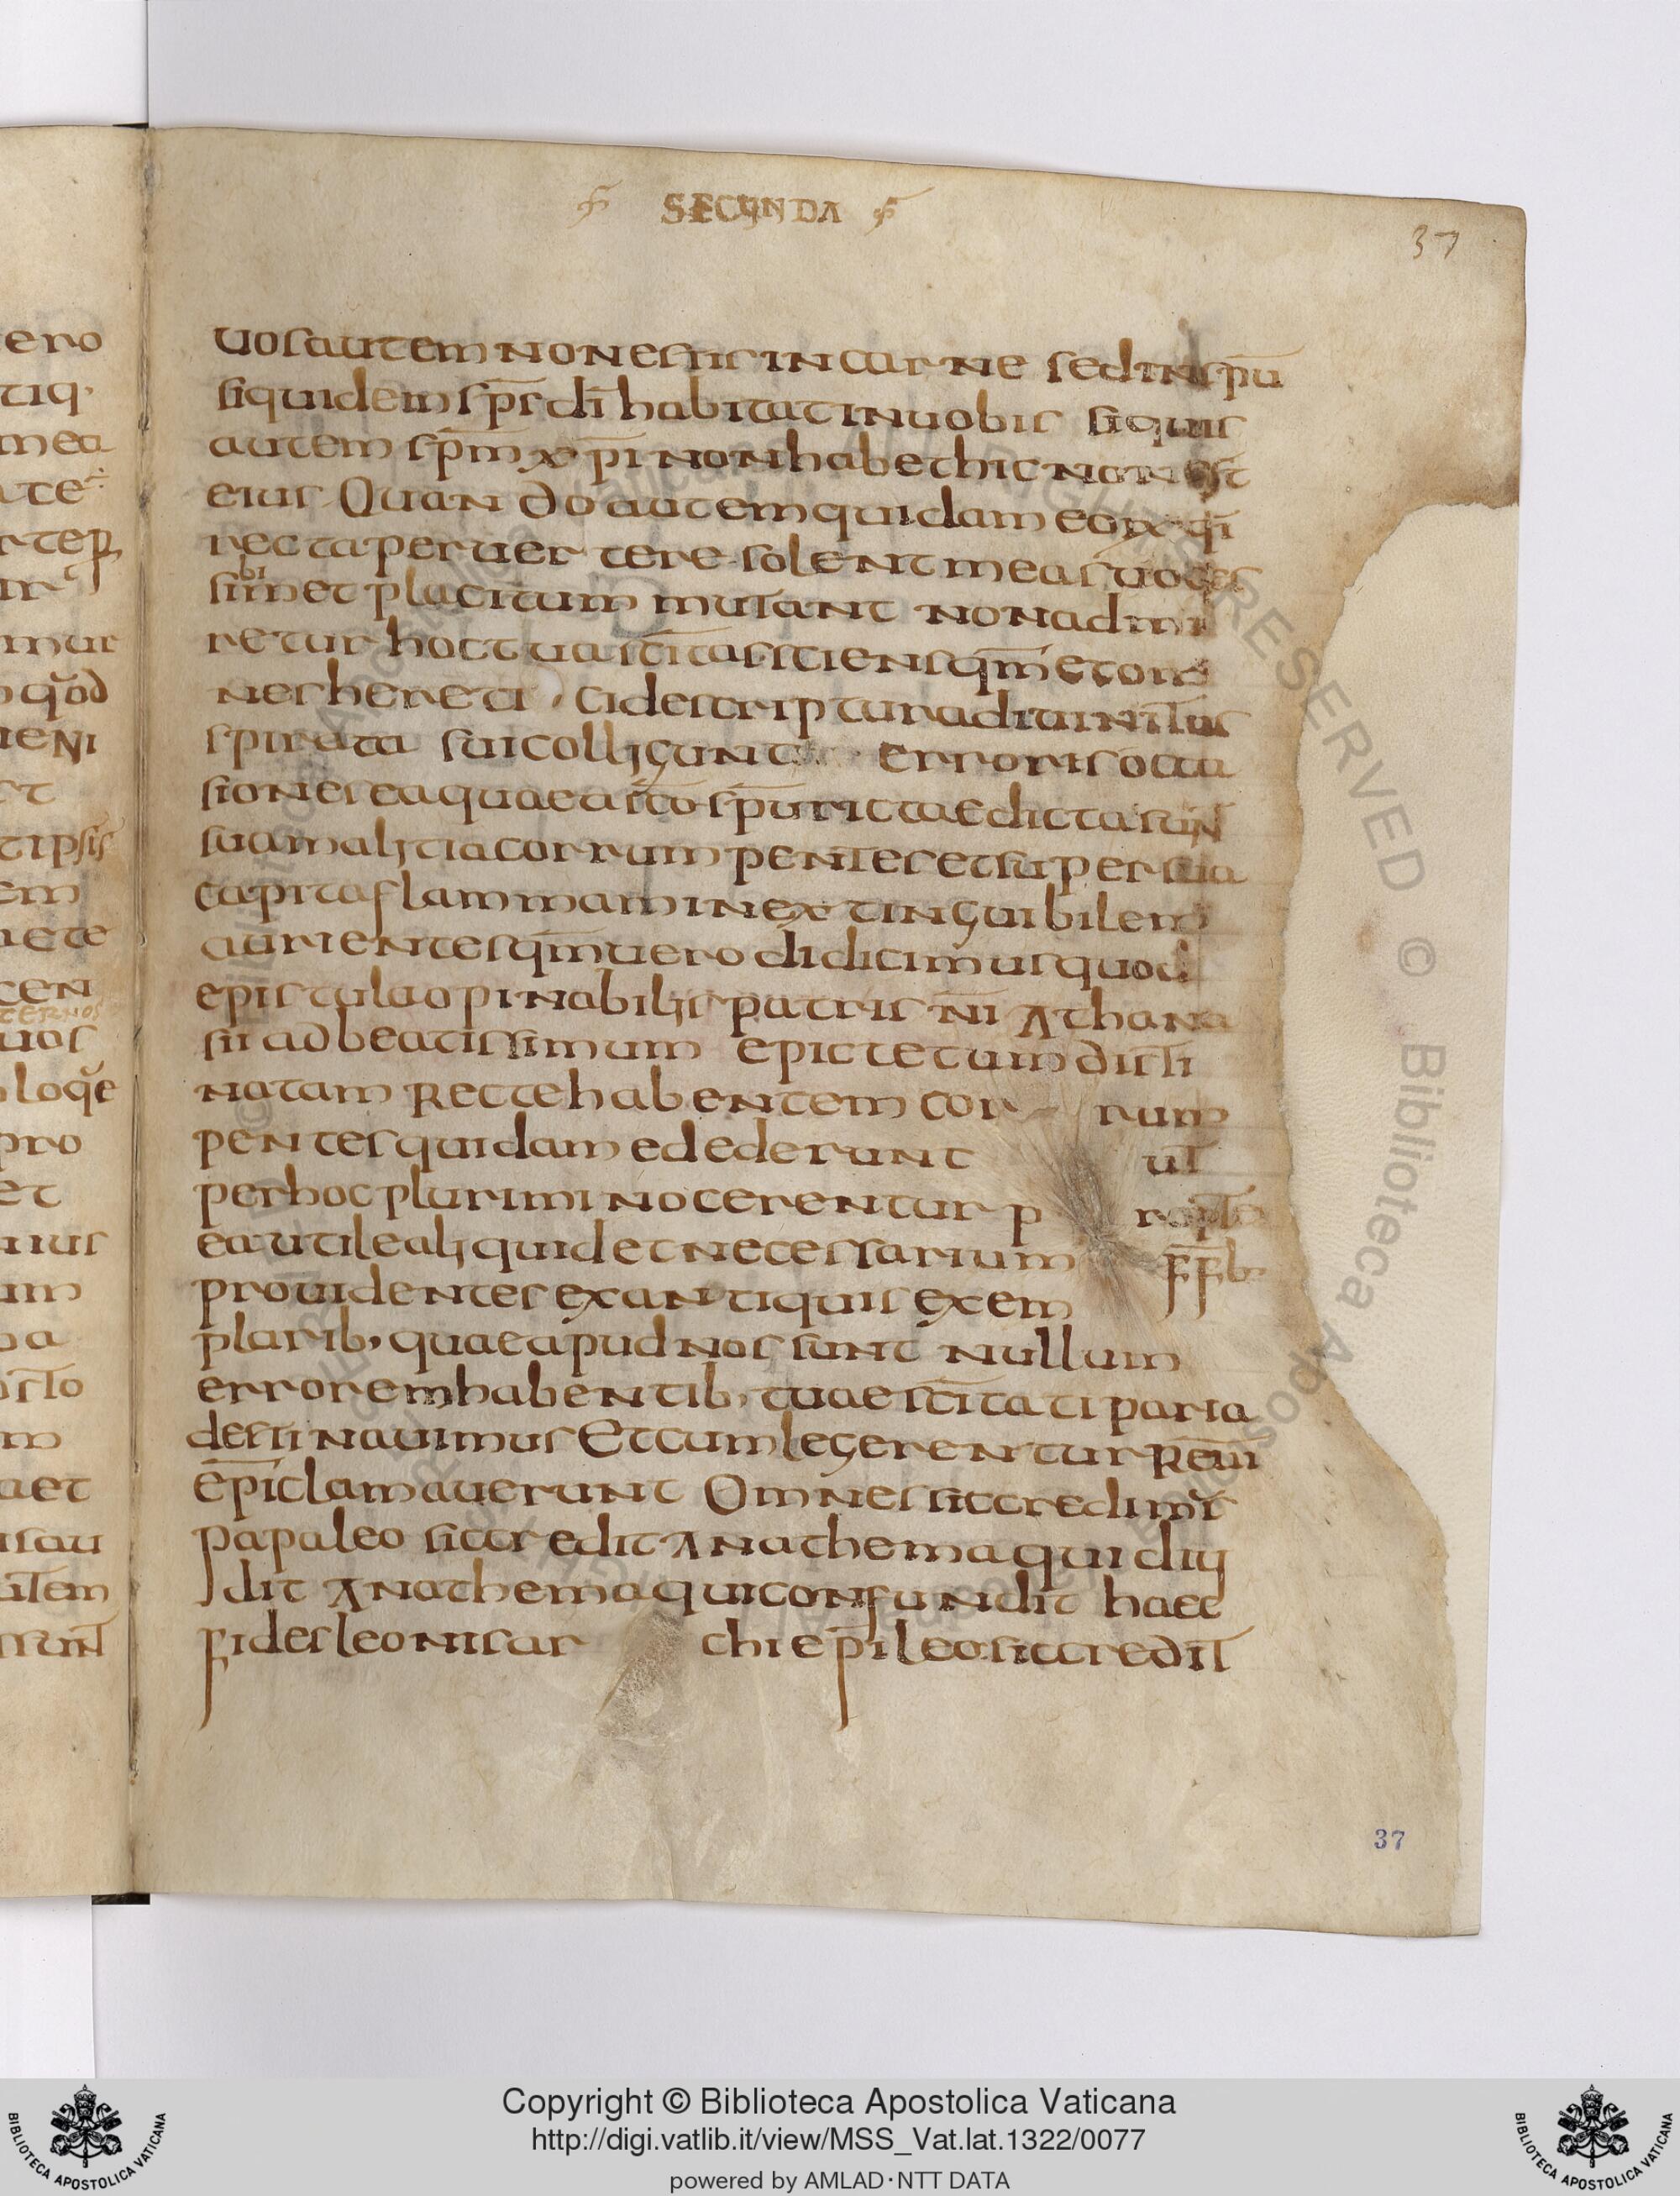 SECUNDA
37
uos autem non estis in carne sed in sp̄u
siquidem sp̄s dī habitat in uobis siquis
autem sp̄m xp̄i non habet hic non est
eius Quando autem quidam eo x q̄i
recta peruertere solent meas uoces
sibimet placitum mutant non admi
retur hoc tua sc̄itas sciens qm̄ et om
nes hereti cide scriptura diuinitus
spirata sui colligunt erroris occa
siones ea quae a sc̄o sp̄u ricta edicta sunt
sua malitia corrumpentes et super sua
capita flammam inextinguibilem
aurientes qm̄ uero didicimus quod
epistula opinabilis patris n̄i Athana
sii ad beatissimum epictetum disti
natam Recte habentem cor rum
pentes quidam ededer unt ut
per hoc plurimi nocerentur p ropte
ea utile aliquid et necessarium ff̄b
prouidentes ex antiquis exem
plarib, quae apud nos sunt nullum
errorem habentib, tuae sc̄itati paria
destinauimus Et cum legerentur Reūi
ep̄i clamauerunt Omnes sic credimꝰ
papa leo sic credit Anathema qui diui
dit Anathema qui confundit haec
fides leonis ar chi ep̄i leo sic credit
37
ero
tiq·
mea
mur
quod
ieni
st
tipsis
em
iete
cen
ternos
uos
loqe
pro
et
nius
um
pa
osto
m
aet
isau
item
runt
Copyright © Biblioteca Apostolica Vaticana
http://digi.vatlib.it/view/MSS_Vat.lat.1322/0077
powered by AMLAD·NTT DATA
BIBLIOTECA APOSTOLICA VATICANA
BIBLIOTECA APOSTOLICA VATICANA